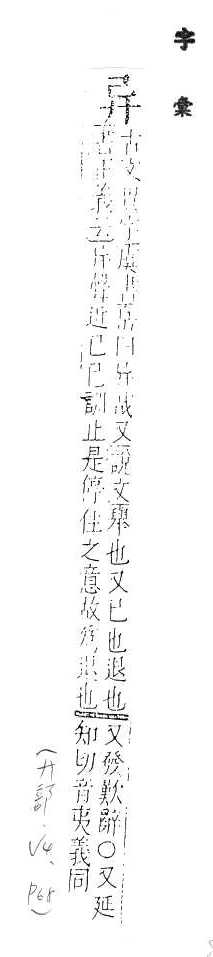 字彙
异
古文異字虞書岳曰异哉又說文舉也又已也退也又發歎辭○又延
正義云异聲近已已訓止是停住之意故為退也知切音夷義同
(廾部.V4、P68)